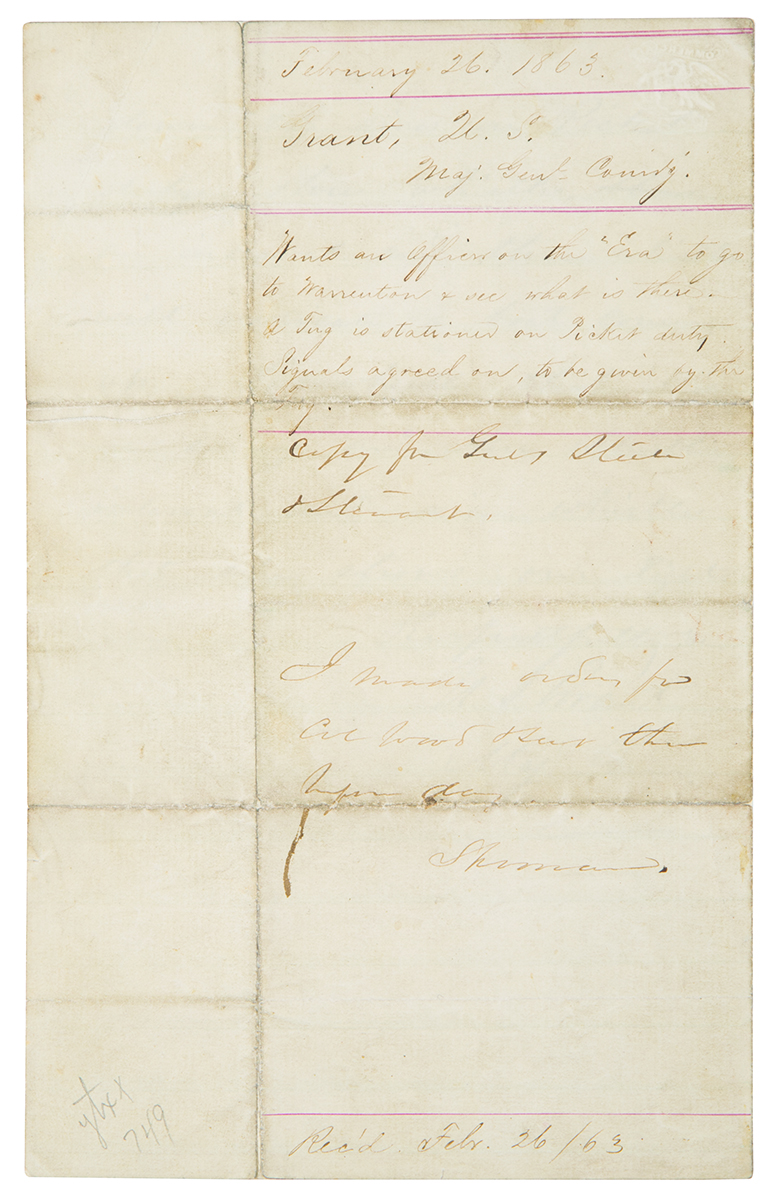 February 26. 1863.
Grant, U. S.
Maj. Genl. Comdg.
Wants an Officer on the "Era" to go
to Warrenton & see what is there.
A Tug is stationed on Picket duty.
Signals agreed on, to be given by the
Tug.
Copy for Genls Steele
& Stuart.
I made orders for
Col Wood & sent them
before day
Sherman.
Rec'd. Febr. 26/63
749